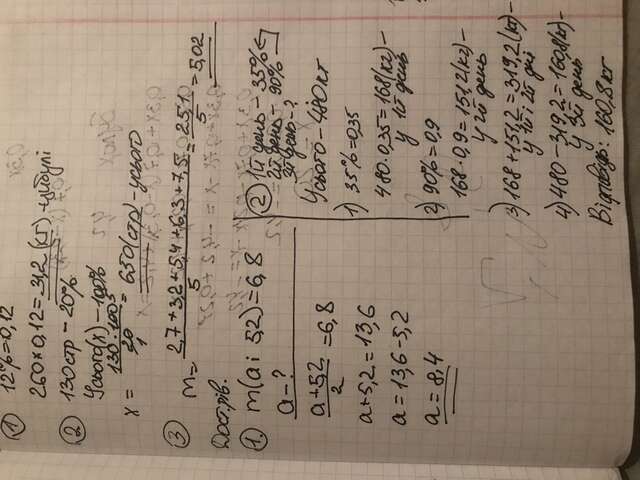 ① 12%=0,12
260×0,12=31,2 (кг)
② 130стр – 20%
Усього(х) – 100%
х = 130·100⁵/20₁ = 650(стр) – усього
③ m = 2,7+3,2+5,4+6,3+7,5/5 = 25,1/5 = 5,02
Дост.рів.
①. m(a і 5,2)=6,8
a – ?
a+5,2/2=6,8
a+5,2=13,6
a=13,6–5,2
a=8,4
② 1й день – 35%
2й день – 90%
3й день – ?
Усього – 480 кг
1) 35%=0,35
480·0,35=168(кг) –
у 1й день
2) 90%=0,9
168·0,9=151,2(кг) –
у 2й день
3) 168+151,2=319,2(кг) –
у 1й і 2й дні
4) 480–319,2=160,8(кг) –
у 3й день
Відповідь: 160,8 кг